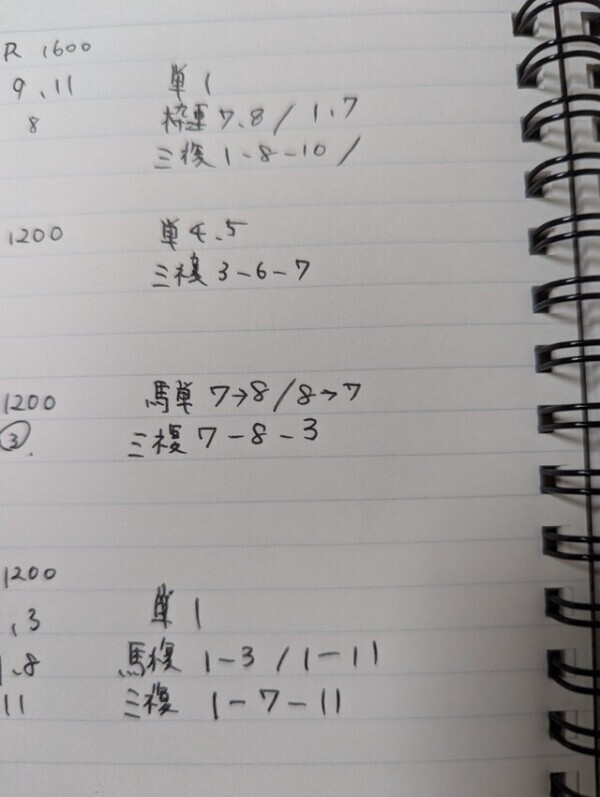 R 1600
9、11 単1
8 枠連 7、8 / 1、7
三複 1-8-10 /
1200 単4、5
三複 3-6-7
1200 馬単 7→8 / 8→7
③. 三複 7-8-3
1200
、3 単1
1、8 馬複 1-3 / 1-11
11 三複 1-7-11